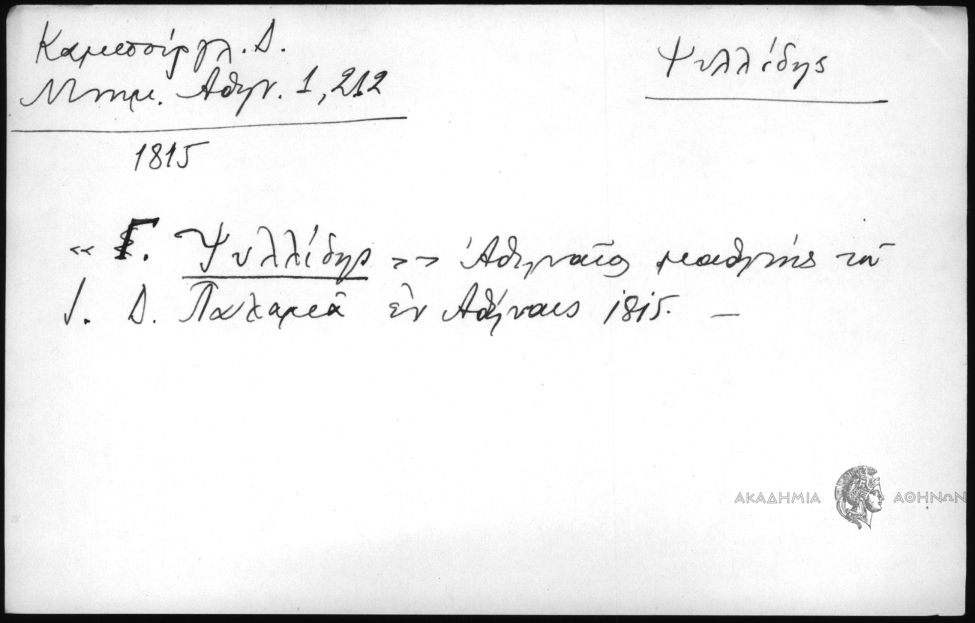 Καμπούργλ. Δ.
Μνημ. Αθην. 1, 212
Ψυλλίδης
1815
« Γ. Ψυλλίδης » Ἀθηναῖος μαθητής τοῦ
Ι. Δ. Παλαμᾶ ἐν Ἀθήναις 1815. —
ΑΚΑΔΗΜΙΑ ΑΘΗΝΩΝ